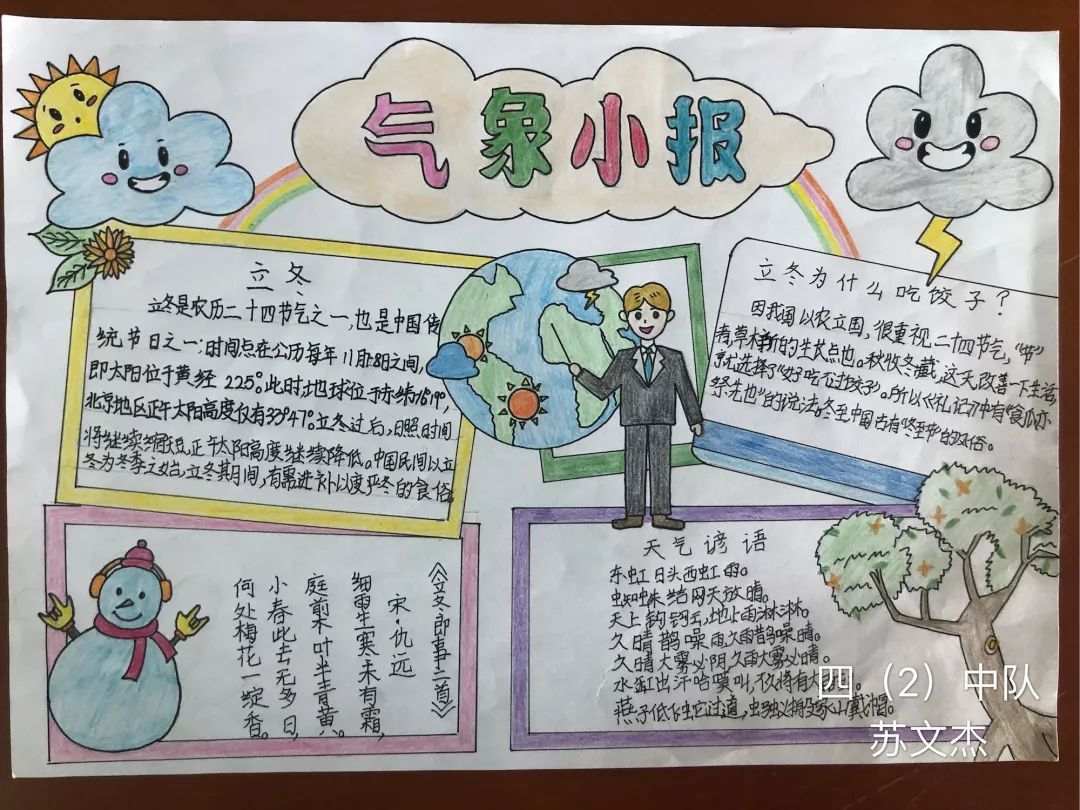 气象小报
立冬
立冬是农历二十四节气之一,也是中国传
统节日之一;时间点在公历每年11月7-8日之间,
即太阳位于黄经225°。此时,地球位于赤纬-16°19',
北京地区正午太阳高度仅有33°47'。立冬过后,日照时间
将继续缩短,正午太阳高度继续降低。中国民间以立
冬为冬季之始,立冬期间,有需进补以度严冬的食俗。
立冬为什么吃饺子?
因我国以农立国,很重视二十四节气,“节”
者,草木新的生长点也。秋收冬藏,这天,改善一下生活,
就选择了“好吃不过饺子”。所以《礼记》中有“食瓜亦
祭先也”的说法。冬至中国古有“冬至节”的风俗。
《立冬即事二首》
宋·仇远
细雨生寒未有霜,
庭前木叶半青黄。
小春此去无多日,
何处梅花一绽香。
天气谚语
东虹日头西虹雨。
蜘蛛结网天放晴。
天上钩钩云,地上雨淋淋。
久晴鹊噪雨,久雨鹊噪晴。
久晴大雾必阴,久雨大雾必晴。
水缸出汗蛤蟆叫,不久将有大
燕子低飞蛇过道,
四(2)中队
苏文杰